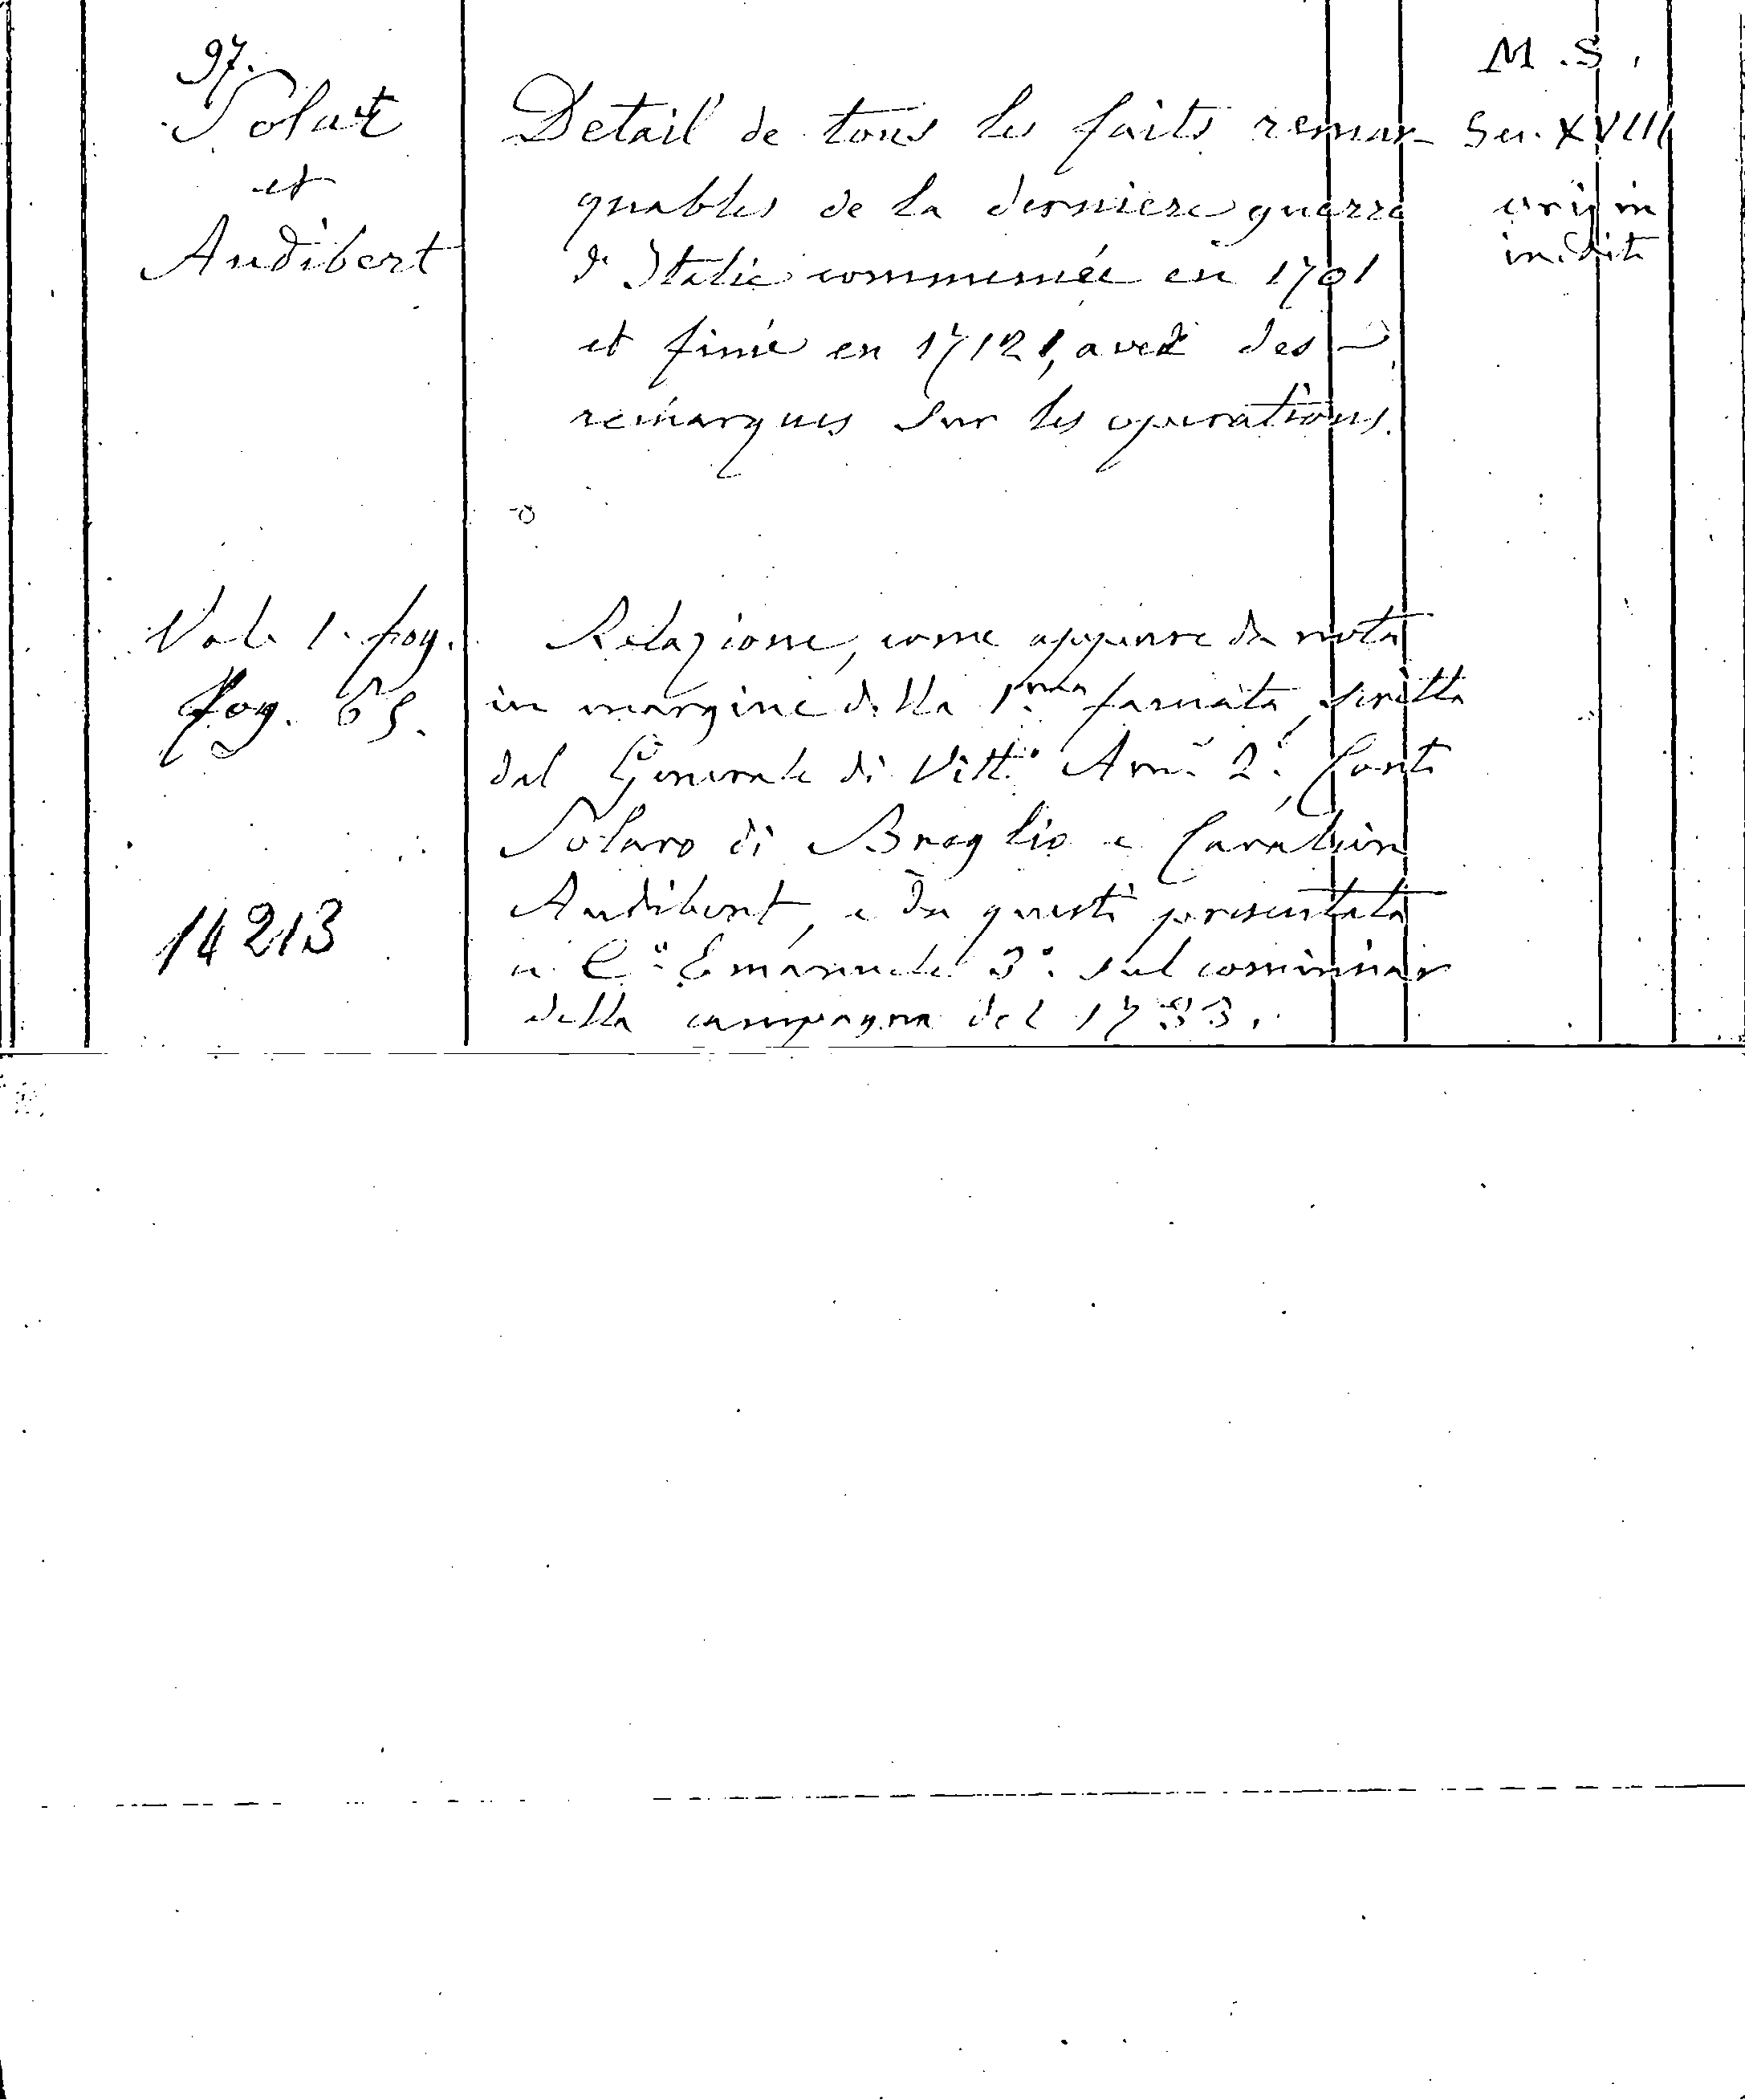 97.
Solar
et
Audibert
Detail de tous les faits remar-
quables de la derniere guerre
d'Italie commencée en 1701
et finie en 1712, avec des
remarques sur les operations.
M.S.
Sec. XVIII
origin
inedit
Vol. 1. fog.
fog. 65.
14213
Relazione, come appare da nota
in margine della 1.ma facciata, scritta
dal Generale di Vitt.o Am.o 2.o, Conte
Solaro di Broglio e Cavalier
Audibert, e da questi presentata
a C.o Emanuele 3.o sul cominciar
della campagna del 1733.